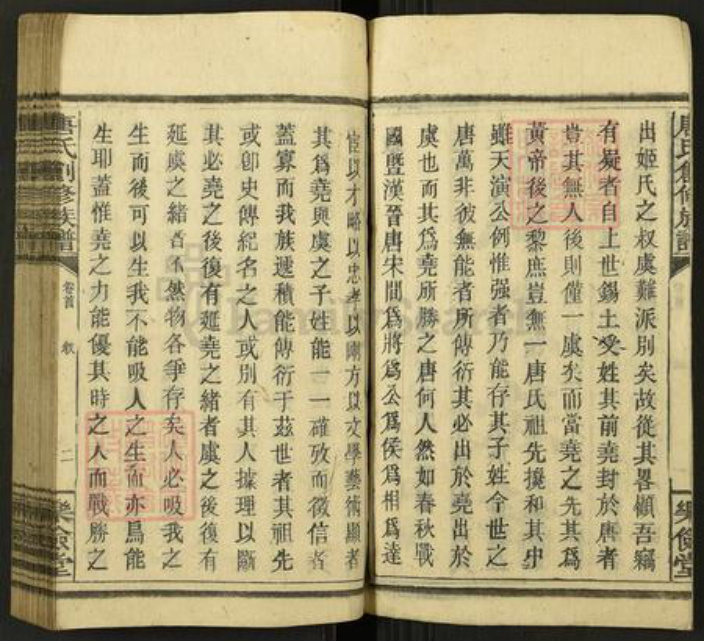 出姬氏之叔虞難派別矣故從其畧顧吾竊
有疑者自上世錫土受姓其前堯封於唐者
豈其無人後則僅一虞矣而當堯之先其爲
黃帝後之黎庶豈無一唐氏祖先攙和其中
雖天演公例惟强者乃能存其子姓今世之
唐萬非彼無能者所傳衍其必出於堯出於
虞也而其爲堯所勝之唐何人然如春秋戰
國曁漢晉唐宋間爲將爲公爲侯爲相爲達
宦以才略以忠孝以剛方以文學藝術顯者
其爲堯與虞之子姓能一一確攷而徵信者
蓋寡而我族遞積能傳衍于茲世者其祖先
或卽史傳紀名之人或別有其人據理以斷
其必堯之後復有延堯之緒者虞之後復有
延虞之緒者不然物各爭存矣人必吸我之
生而後可以生我不能吸人之生而亦烏能
生耶蓋惟堯之力能優其時之人而戰勝之
唐氏創修族譜
卷首
敘
二
樂儉堂